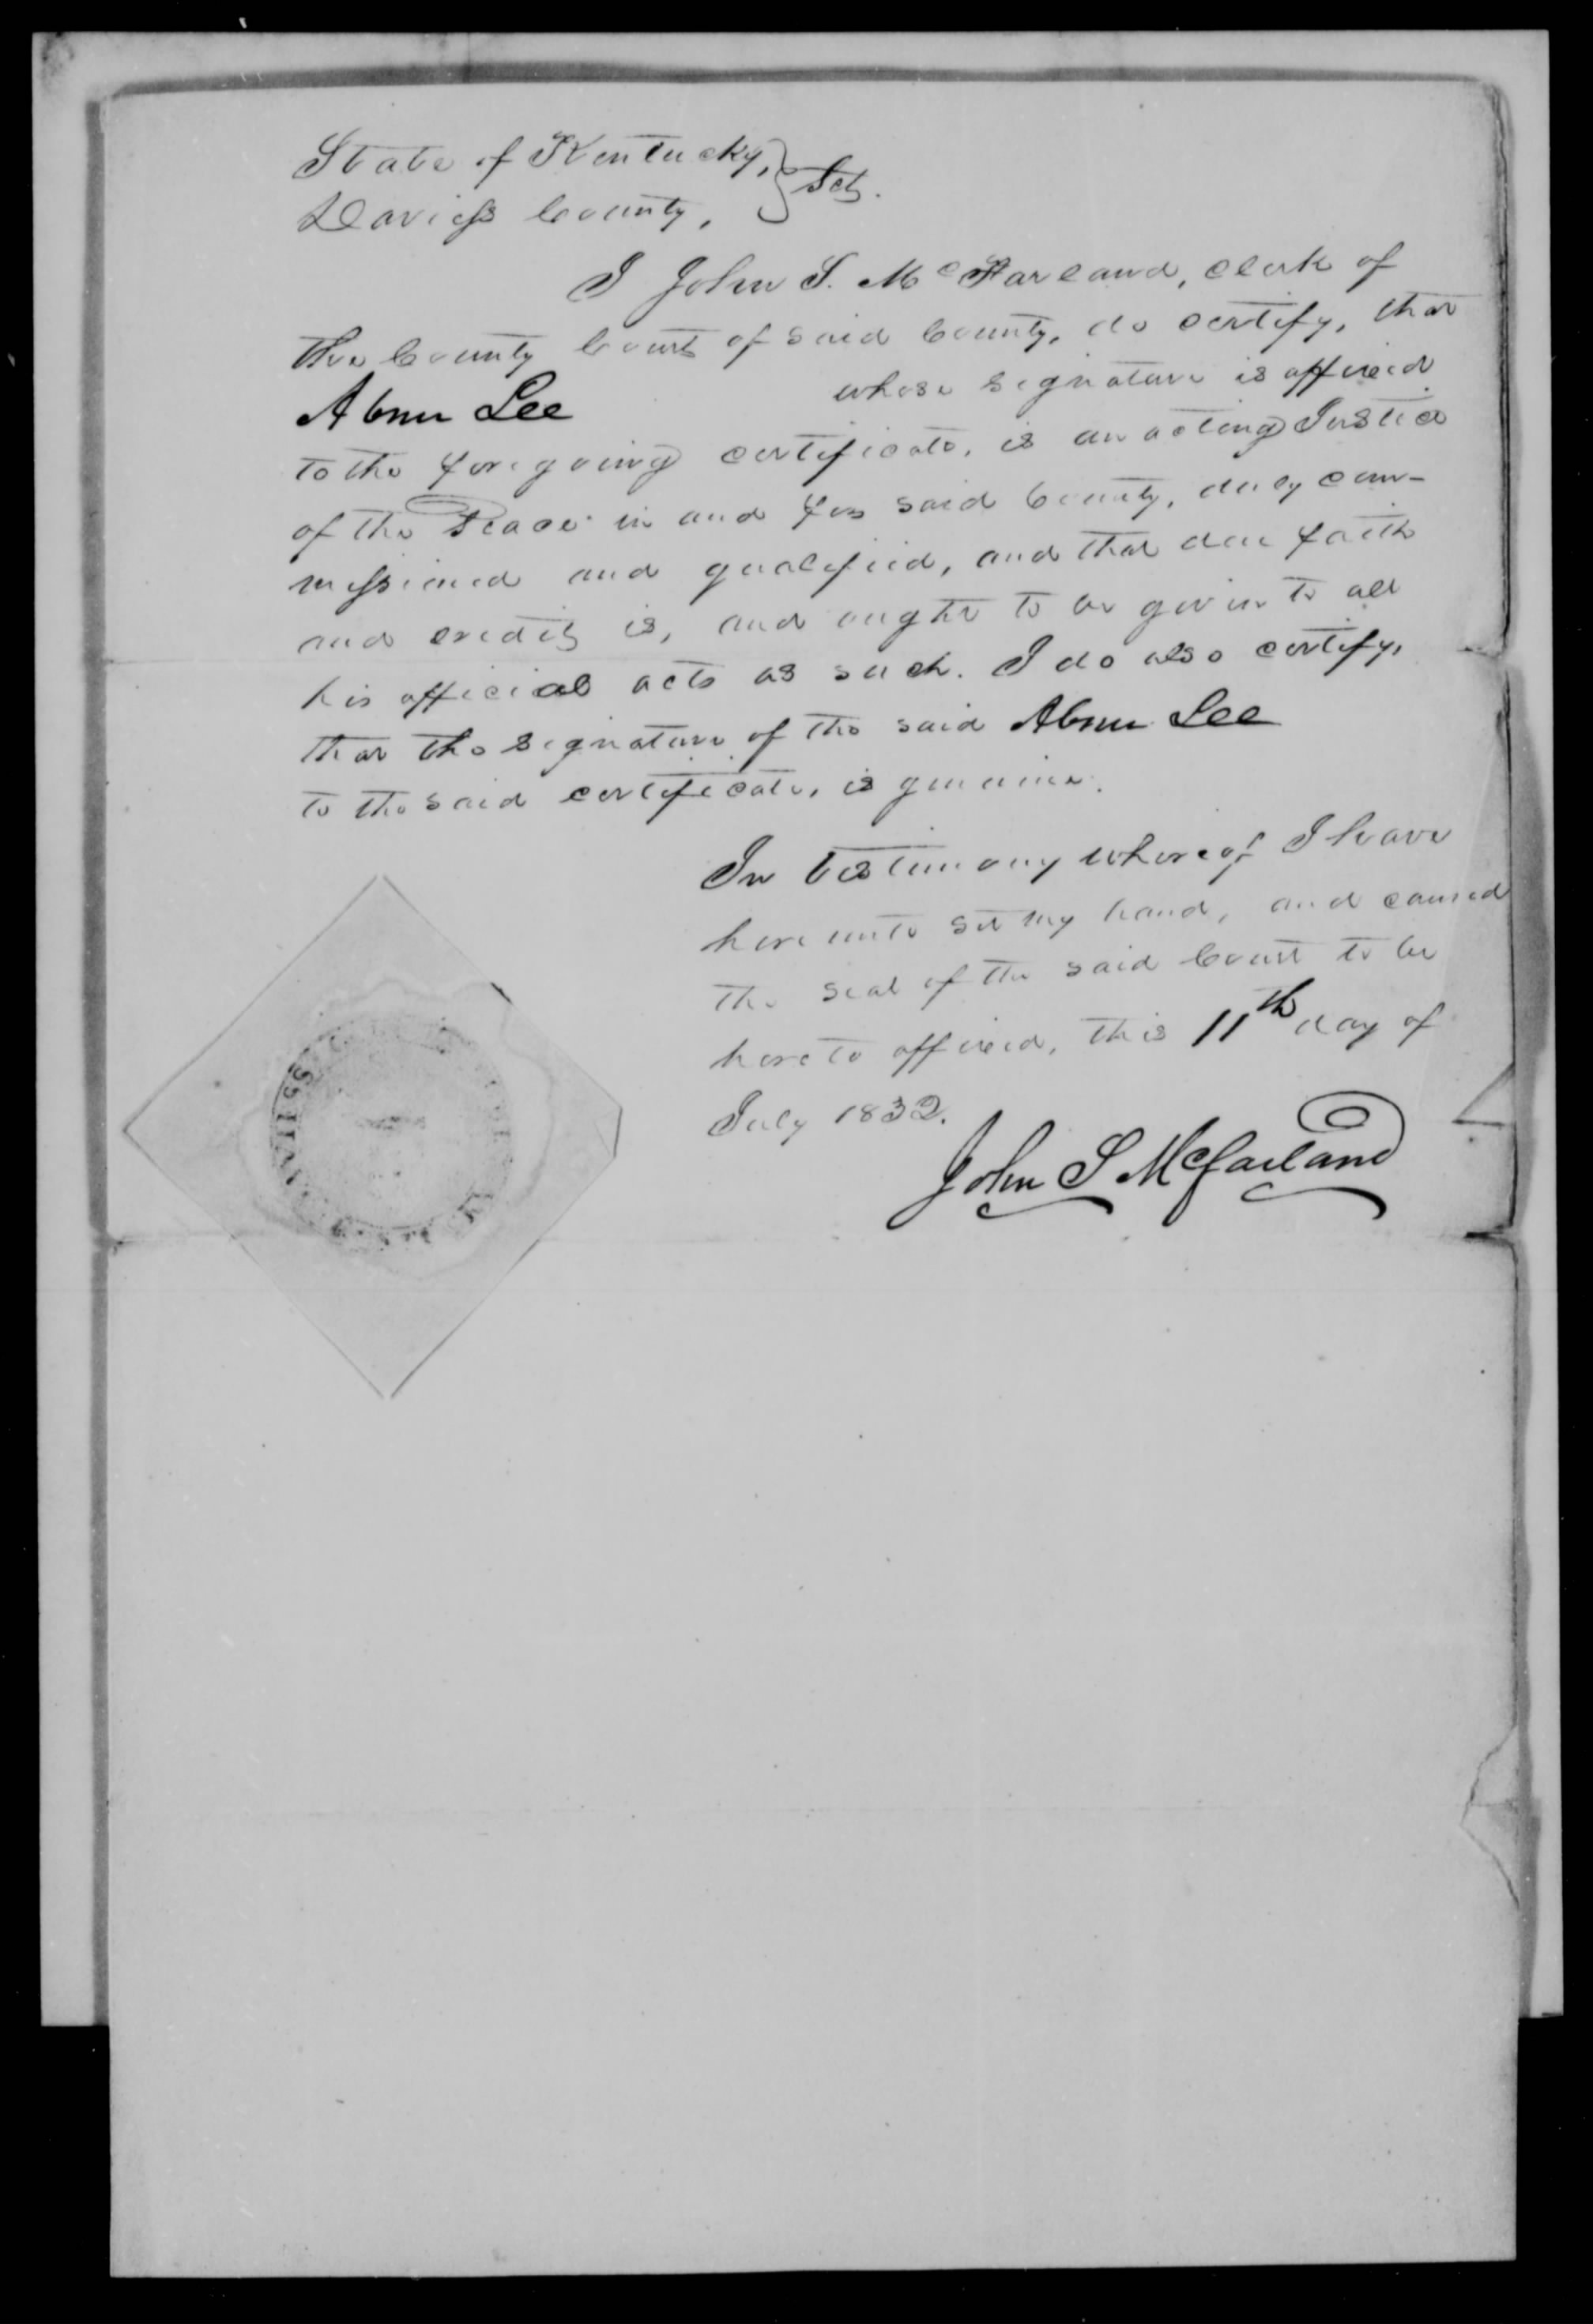 State of Kentucky, } Sct.
Daviess County,
I John S. McFarland, clerk of
the County Court of said County, do certify, that
Abner Lee whose signature is affixed
to the foregoing certificate, is an acting Justice
of the Peace in and for said County, duly com-
missioned and qualified, and that due faith
and credit is, and ought to be given to all
his official acts as such. I do also certify,
that the signature of the said Abner Lee
to the said certificate, is genuine.
In testimony whereof I have
hereunto set my hand, and caused
the seal of the said Court to be
hereto affixed, this 11th day of
July 1832.
John S McFarland
DAVIESS